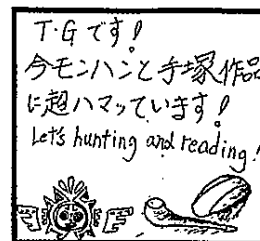 T・Gです!
今モンハンと手塚作品
に超ハマッています!
Let's hunting and reading!